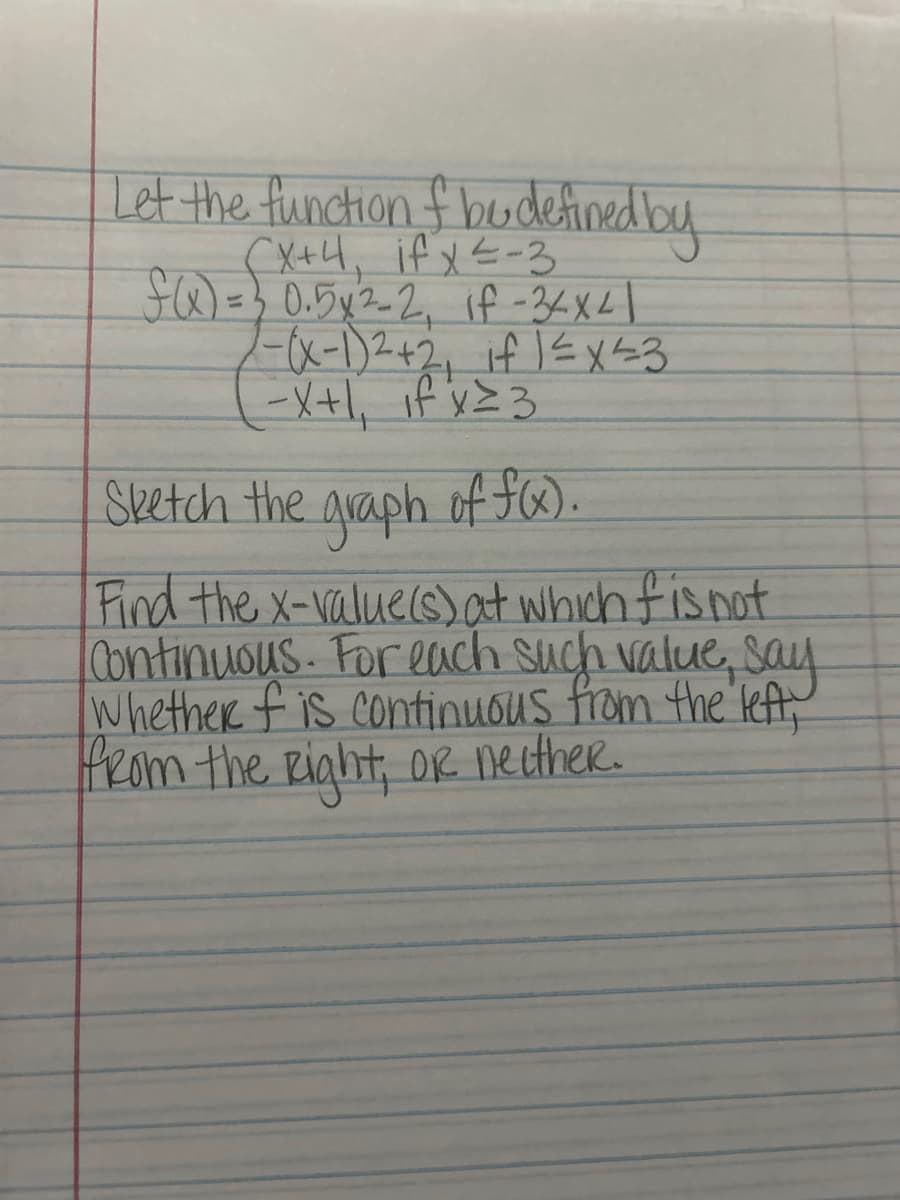 Let the function f be defined by
x+4, if x ≤ -3
f(x) = { 0.5x²-2, if -3<x<1
-(x-1)²+2, if 1≤x≤3
-x+1, if x≥3
Sketch the graph of f(x).
Find the x-value(s) at which f is not
continuous. For each such value, say
whether f is continuous from the left,
from the right, or neither.